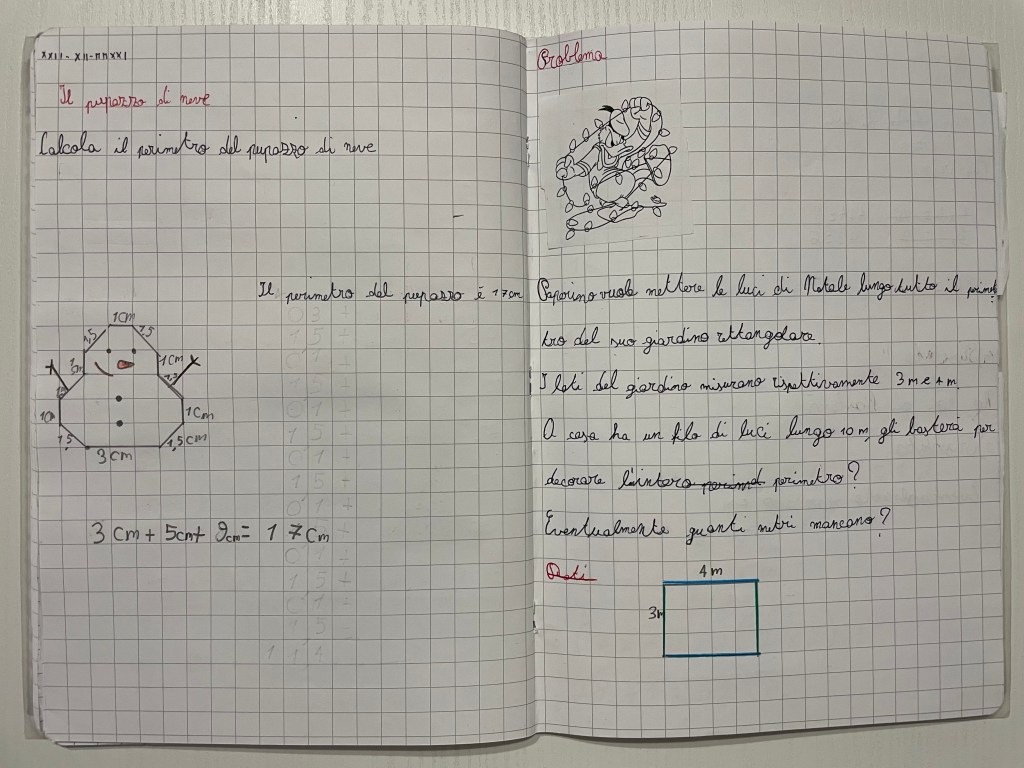 XXII-XII-MMXXI
Il pupazzo di neve
Calcola il perimetro del pupazzo di neve
Il perimetro del pupazzo è 17cm
1cm
1,5
1,5
1cm
1,5
1cm
1,5
1,5cm
3cm
3cm+5cm+9cm=17cm
Problema
Paperino vuole mettere le luci di Natale lungo tutto il perime
tro del suo giardino rettangolare.
I lati del giardino misurano rispettivamente 3m e 4m.
A casa ha un filo di luci lungo 10 m, gli basterà per
decorare l'intero perimetro?
Eventualmente quanti metri mancano?
Dati
4m
3m